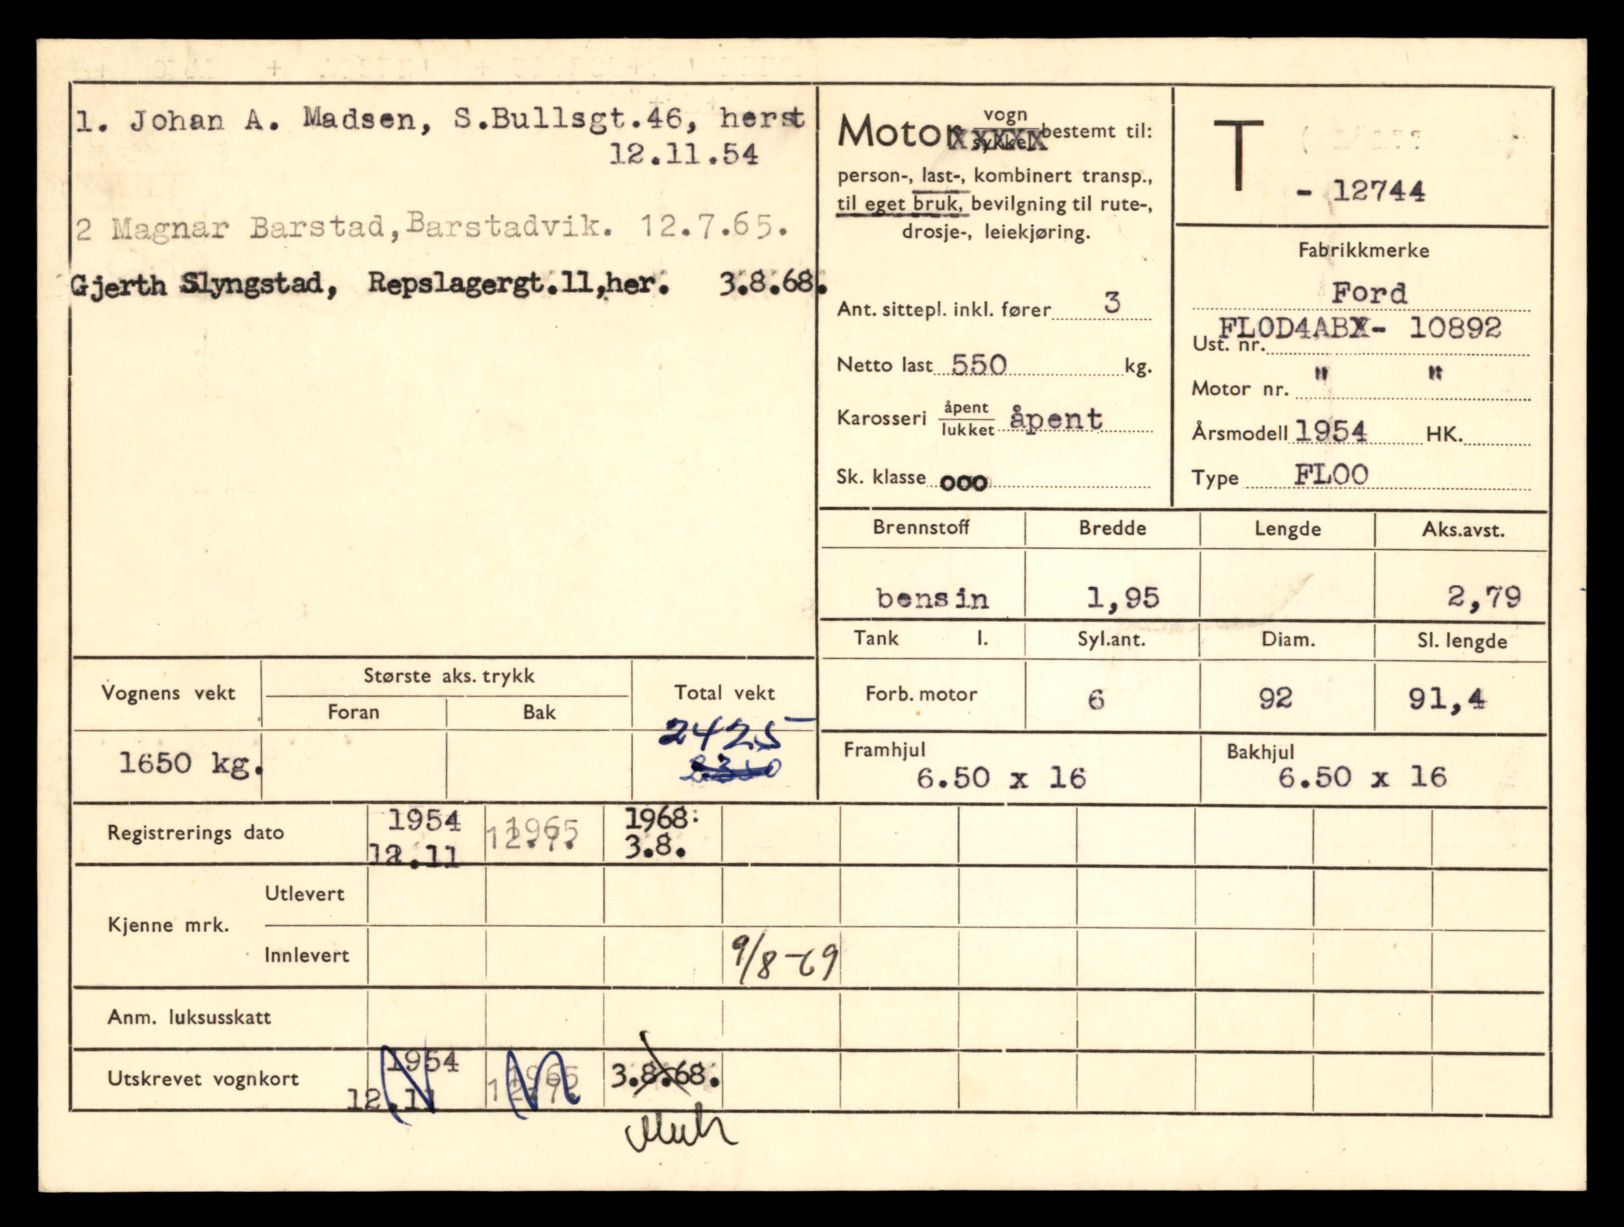 1. Johan A. Madsen, S.Bullsgt.46, herst
12.11.54
2 Magnar Barstad, Barstadvik. 12.7.65.
Gjerth Slyngstad, Repslagergt.11,her. 3.8.68.
Motor vogn sykkel bestemt til:
person-, last-, kombinert transp.,
til eget bruk, bevilgning til rute-,
drosje-, leiekjøring.
Ant. sittepl. inkl. fører 3
Netto last 550 kg.
Karosseri åpent lukket åpent
Sk. klasse ooo
T - 12744
Fabrikkmerke
Ford
FLOD4ABX- 10892
Ust. nr.
Motor nr. " "
Årsmodell 1954 HK.
Type FLOO
Brennstoff Bredde Lengde Aks.avst.
bensin 1,95 2,79
Tank l. Syl.ant. Diam. Sl. lengde
Forb. motor 6 92 91,4
Framhjul Bakhjul
6.50 x 16 6.50 x 16
Vognens vekt Største aks. trykk Total vekt
Foran Bak
2425
1650 kg.
Registrerings dato 1954 1965 1968:
12.11 12.7. 3.8.
Kjenne mrk. Utlevert
Innlevert 9/8-69
Anm. luksusskatt
Utskrevet vognkort 1954 1965 3.8.68.
12.11 12.7.